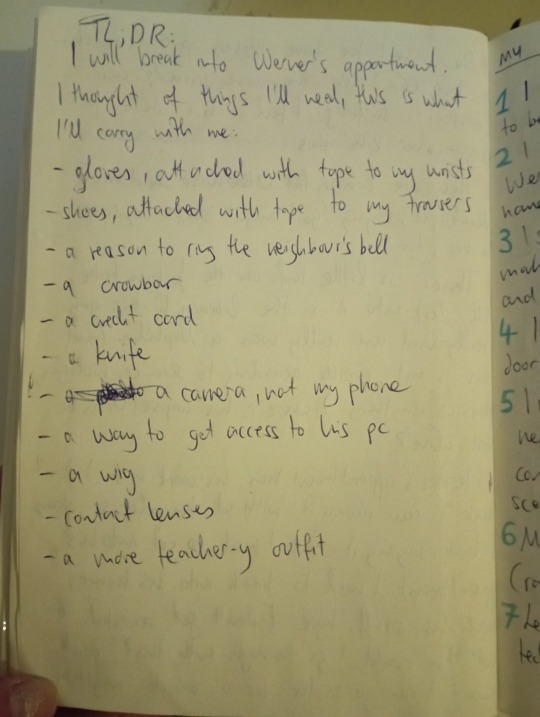 TL;DR:
I will break into Werner's appartment.
I thought of things I'll need, this is what
I'll carry with me:
- gloves, attached with tape to my wrists
- shoes, attached with tape to my trousers
- a reason to ring the neighbour's bell
- a crowbar
- a credit card
- a knife
- a camera, not my phone
- a way to get access to his pc
- a wig
- contact lenses
- a more teacher-y outfit
My
1 I
to be
2 I
We
3 I
and
4 I
door
5 I
6 M
7 Le